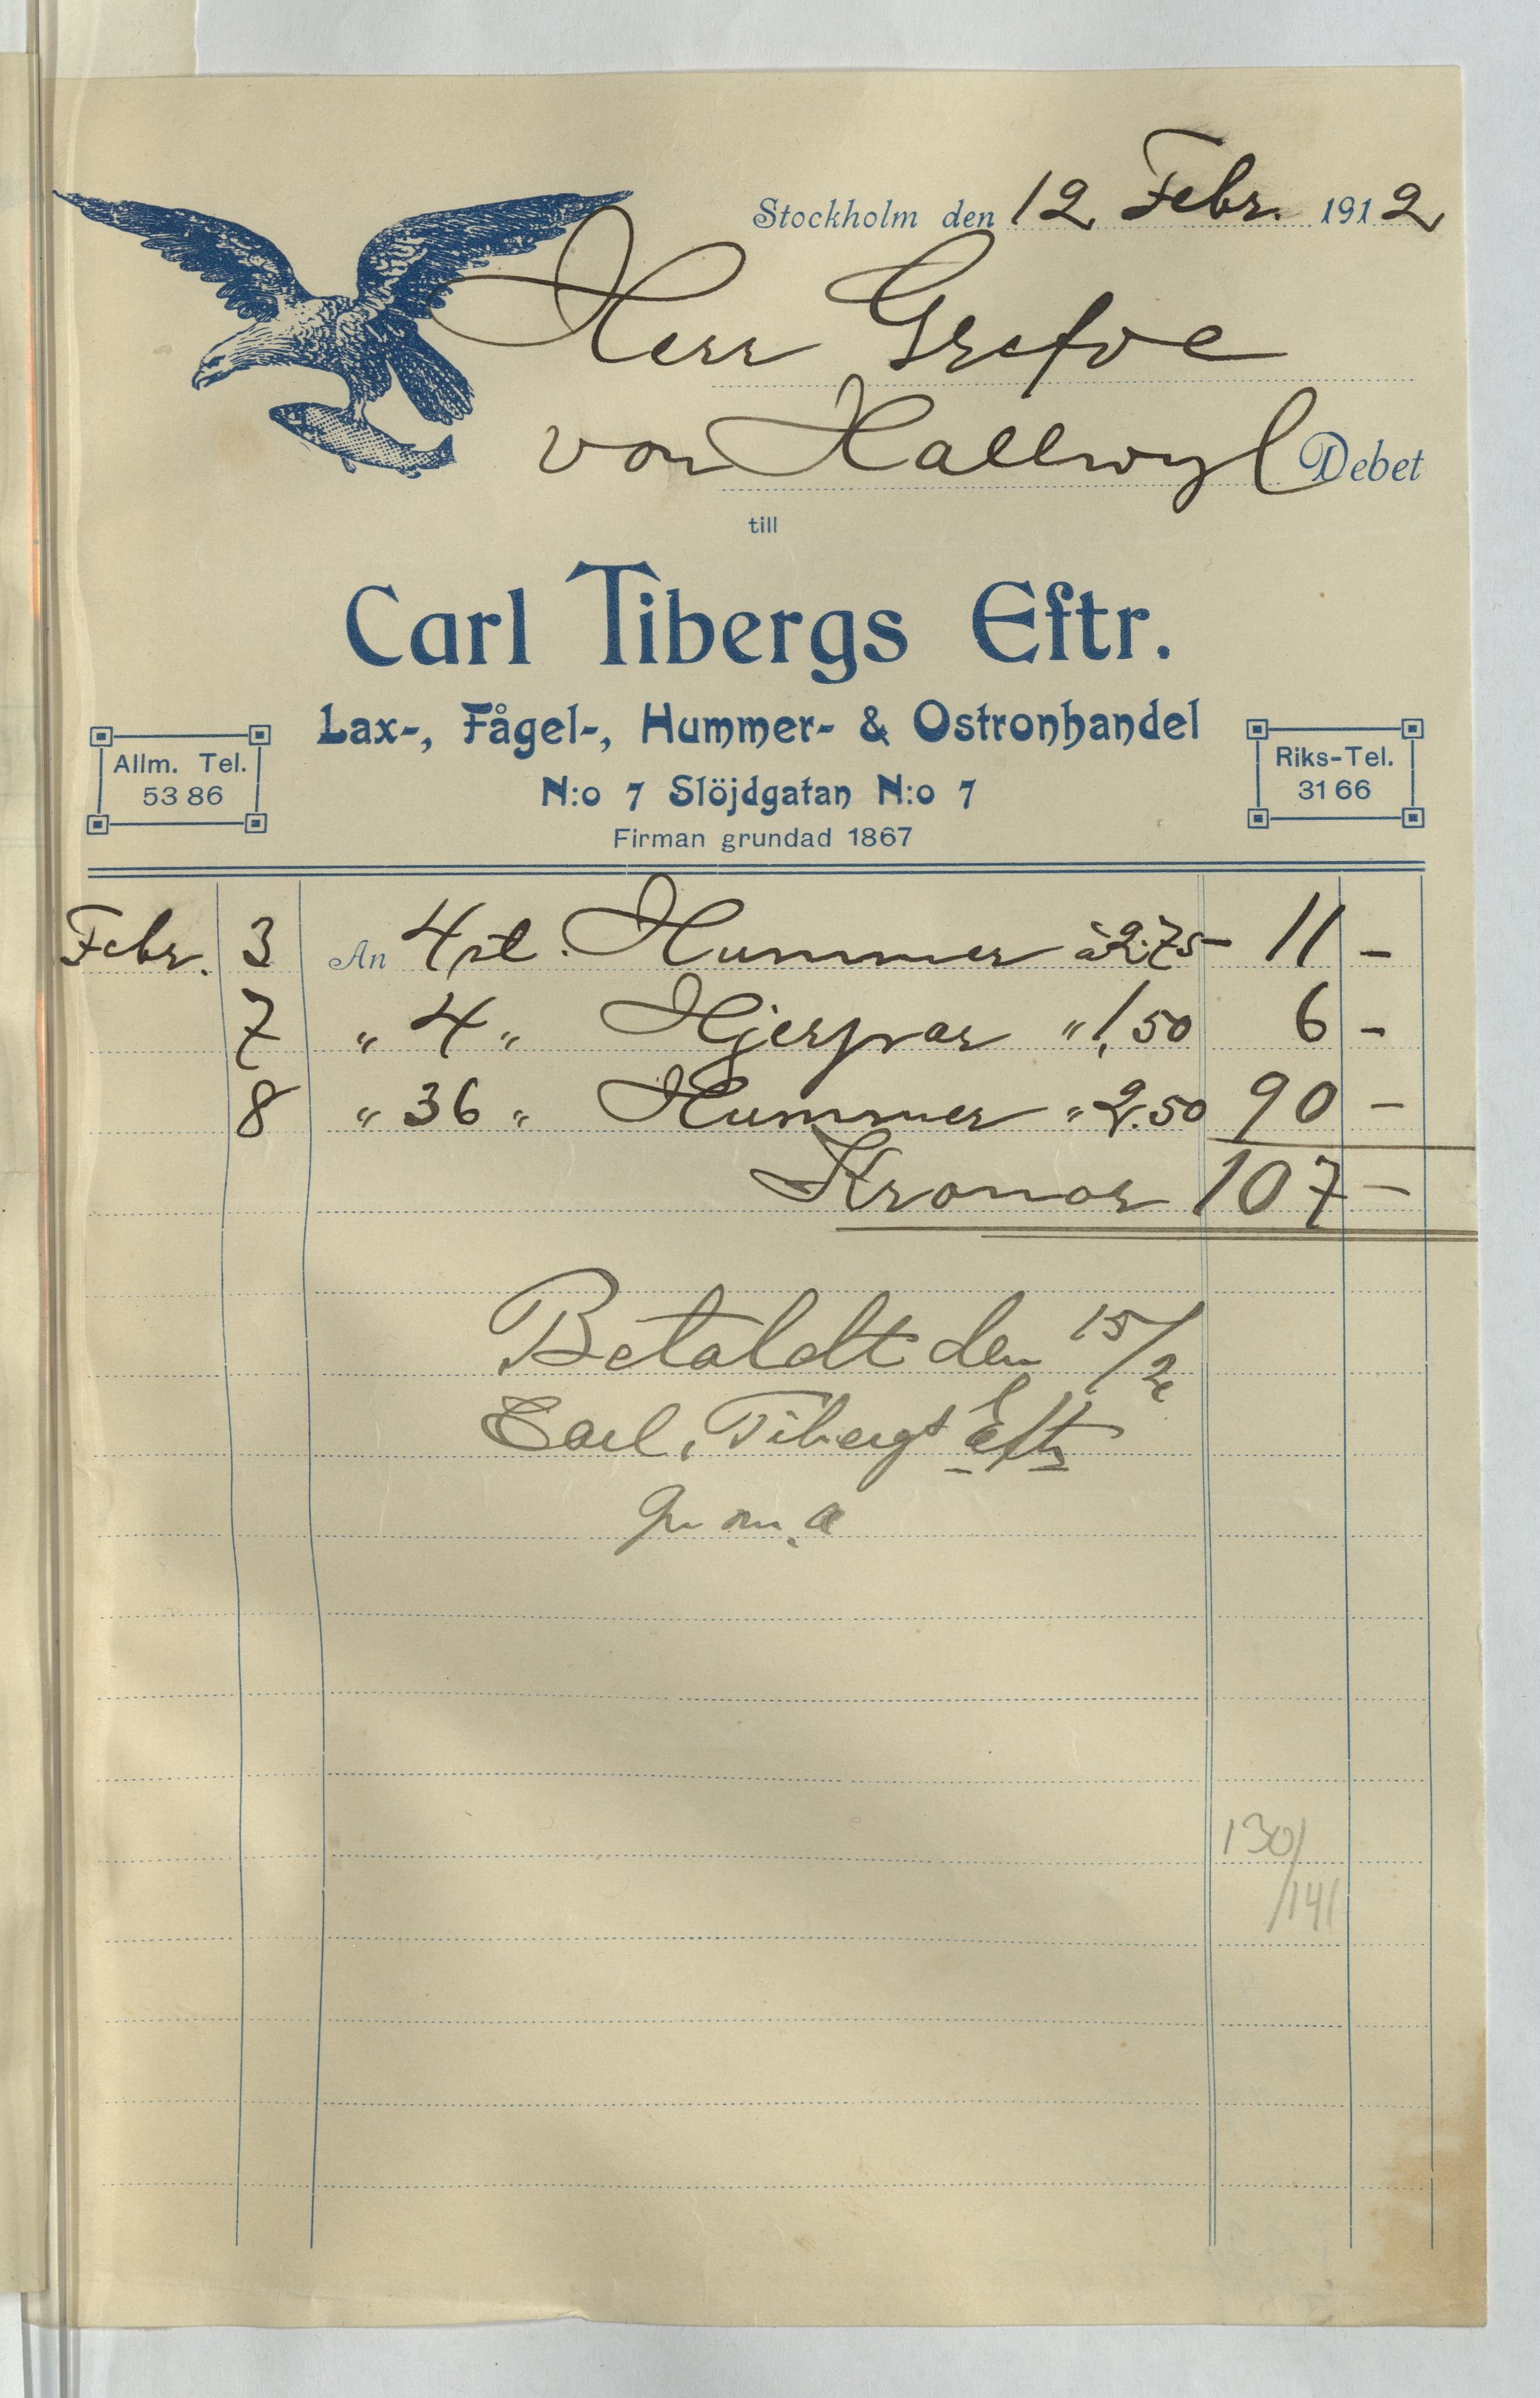 Stockholm den 12 Febr. 1912
Herr Grefve
von Hallwyl Debet
till
Carl Tibergs Eftr.
Lax-, Fågel-, Hummer- & Ostronhandel
Allm. Tel. 53 86
N:o 7 Slöjdgatan N:o 7
Riks-Tel. 31 66
Firman grundad 1867
Febr. 3 An 4 st. Hummer à 2.75 11 -
7 " 4 " Hjerpar " 1,50 6 -
8 " 36 " Hummer " 2.50 90 -
Kronor 107 -
Betaldt den 15/2
Carl Tibergs Eftr
130/
/141